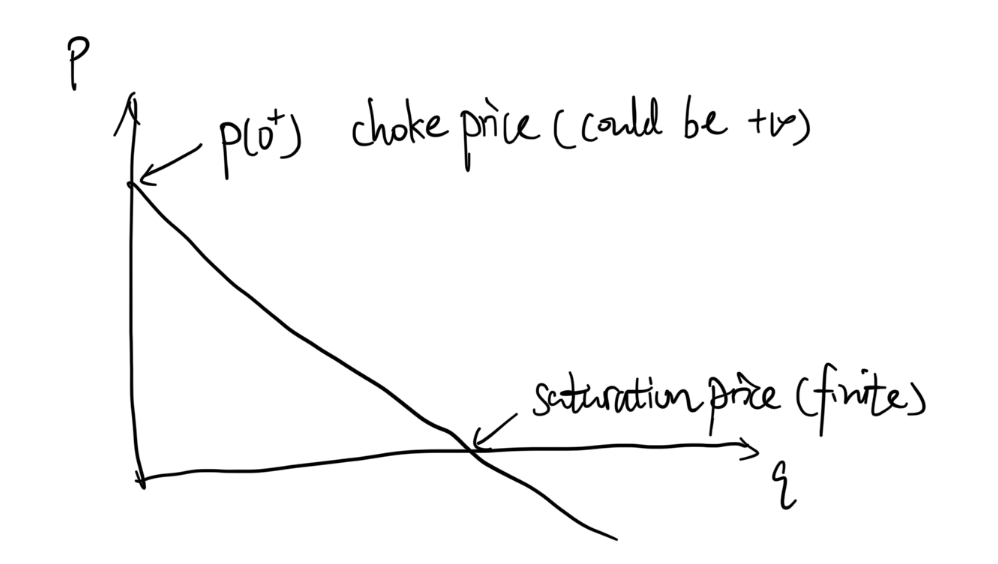 P
p(0⁺) choke price (could be +∞)
saturation price (finite)
q